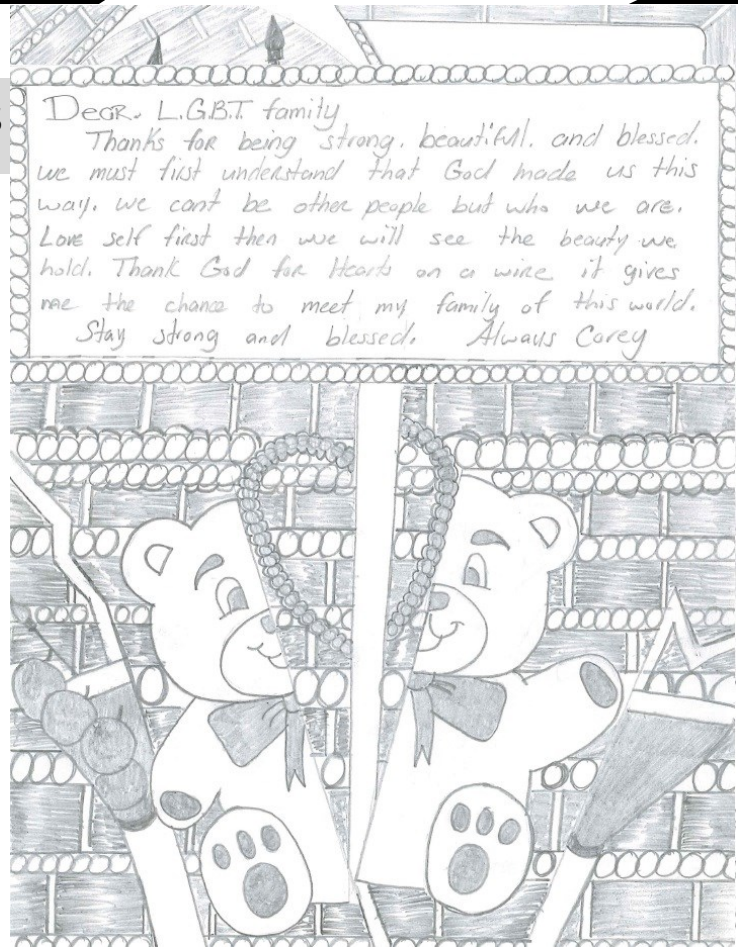 Dear. L.G.B.T. family
Thanks for being strong, beautiful, and blessed.
we must first understand that God made us this
way. we cant be other people but who we are.
Love self first then we will see the beauty we
hold. Thank God for Hearts on a wire it gives
me the chance to meet my family of this world.
Stay strong and blessed. Always Corey